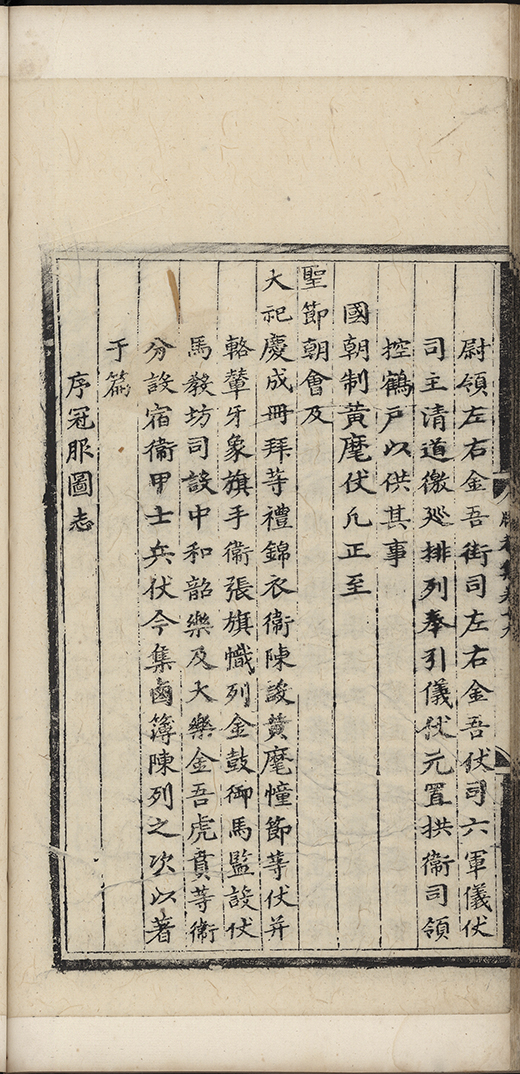 尉領左右金吾街司左右金吾仗司六軍儀仗
司主清道徼廵排列奉引儀仗元置拱衞司領
控鶴戸以供其事
國朝制黄麾仗凢正至
聖節朝會及
大祀慶成冊拜等禮錦衣衞陳設黄麾幢節等仗并
輅輦牙象旗手衞張旗幟列金鼓御馬監設仗
馬敎坊司設中和韶樂及大樂金吾虎賁等衞
分設宿衞甲士兵仗今集鹵簿陳列之次以著
于篇
序冠服圖志